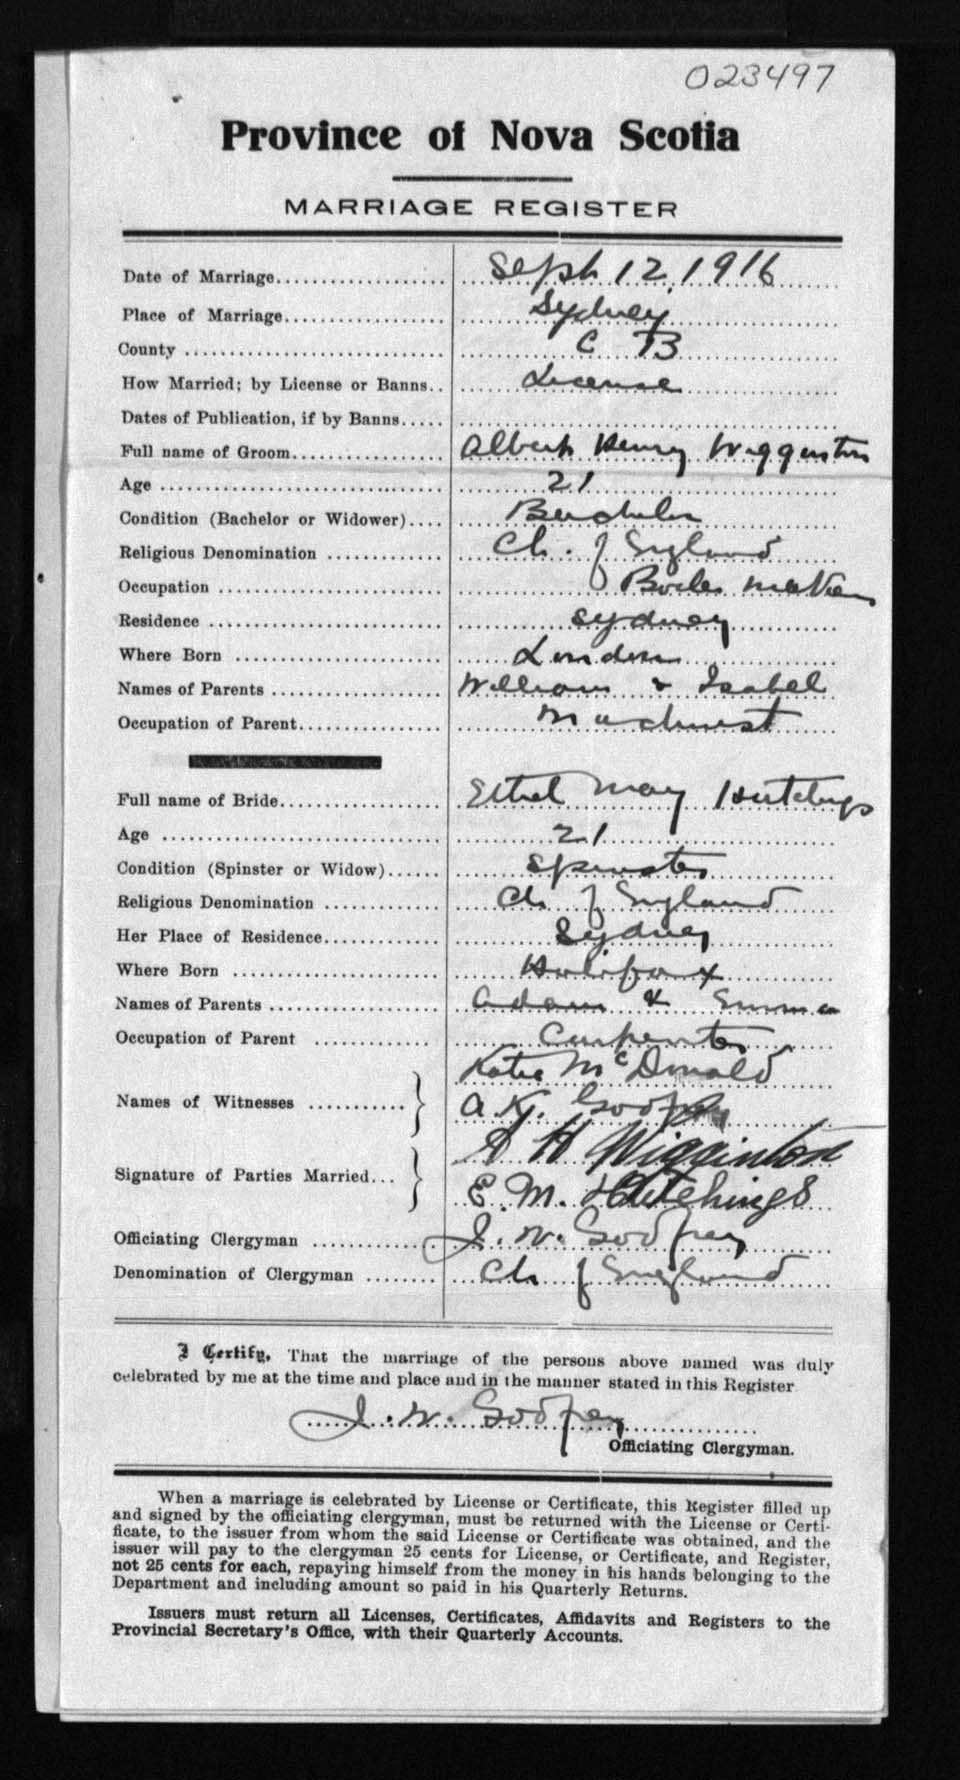 023497
Province of Nova Scotia
MARRIAGE REGISTER
Date of Marriage.................... Sept 12, 1916
Place of Marriage................... Sydney
County .......................... C B
How Married; by License or Banns.. License
Dates of Publication, if by Banns.....
Full name of Groom.................. Albert Henry Wigginton
Age ............................. 21
Condition (Bachelor or Widower).... Bachelor
Religious Denomination ............. Ch. of England
Occupation ......................... Boiler maker
Residence .......................... Sydney
Where Born ....................... London
Names of Parents ................... William & Isabel
Occupation of Parent................ Machinist
Full name of Bride.................. Ethel May Hutchings
Age ............................. 21
Condition (Spinster or Widow)...... Spinster
Religious Denomination ............. Ch of England
Her Place of Residence............. Sydney
Where Born ....................... Halifax
Names of Parents ................... Adam & Emma
Occupation of Parent ............. Carpenter
Katie McDonald
Names of Witnesses ...........
A. K. Godfrey
A H Wigginton
Signature of Parties Married...
E. M. Hutchings
Officiating Clergyman ............. J. W. Godfrey
Denomination of Clergyman ........ Ch of England
I Certify, That the marriage of the persons above named was duly
celebrated by me at the time and place and in the manner stated in this Register
J. W. Godfrey
Officiating Clergyman.
When a marriage is celebrated by License or Certificate, this Register filled up
and signed by the officiating clergyman, must be returned with the License or Certi-
ficate, to the issuer from whom the said License or Certificate was obtained, and the
issuer will pay to the clergyman 25 cents for License, or Certificate, and Register,
not 25 cents for each, repaying himself from the money in his hands belonging to the
Department and including amount so paid in his Quarterly Returns.
Issuers must return all Licenses, Certificates, Affidavits and Registers to the
Provincial Secretary's Office, with their Quarterly Accounts.